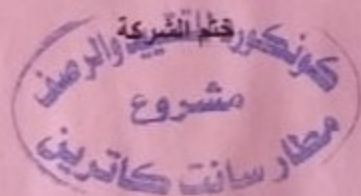 ختم الشركة
كونكورد للتشييد والرصف
مشروع
مطار سانت كاترين